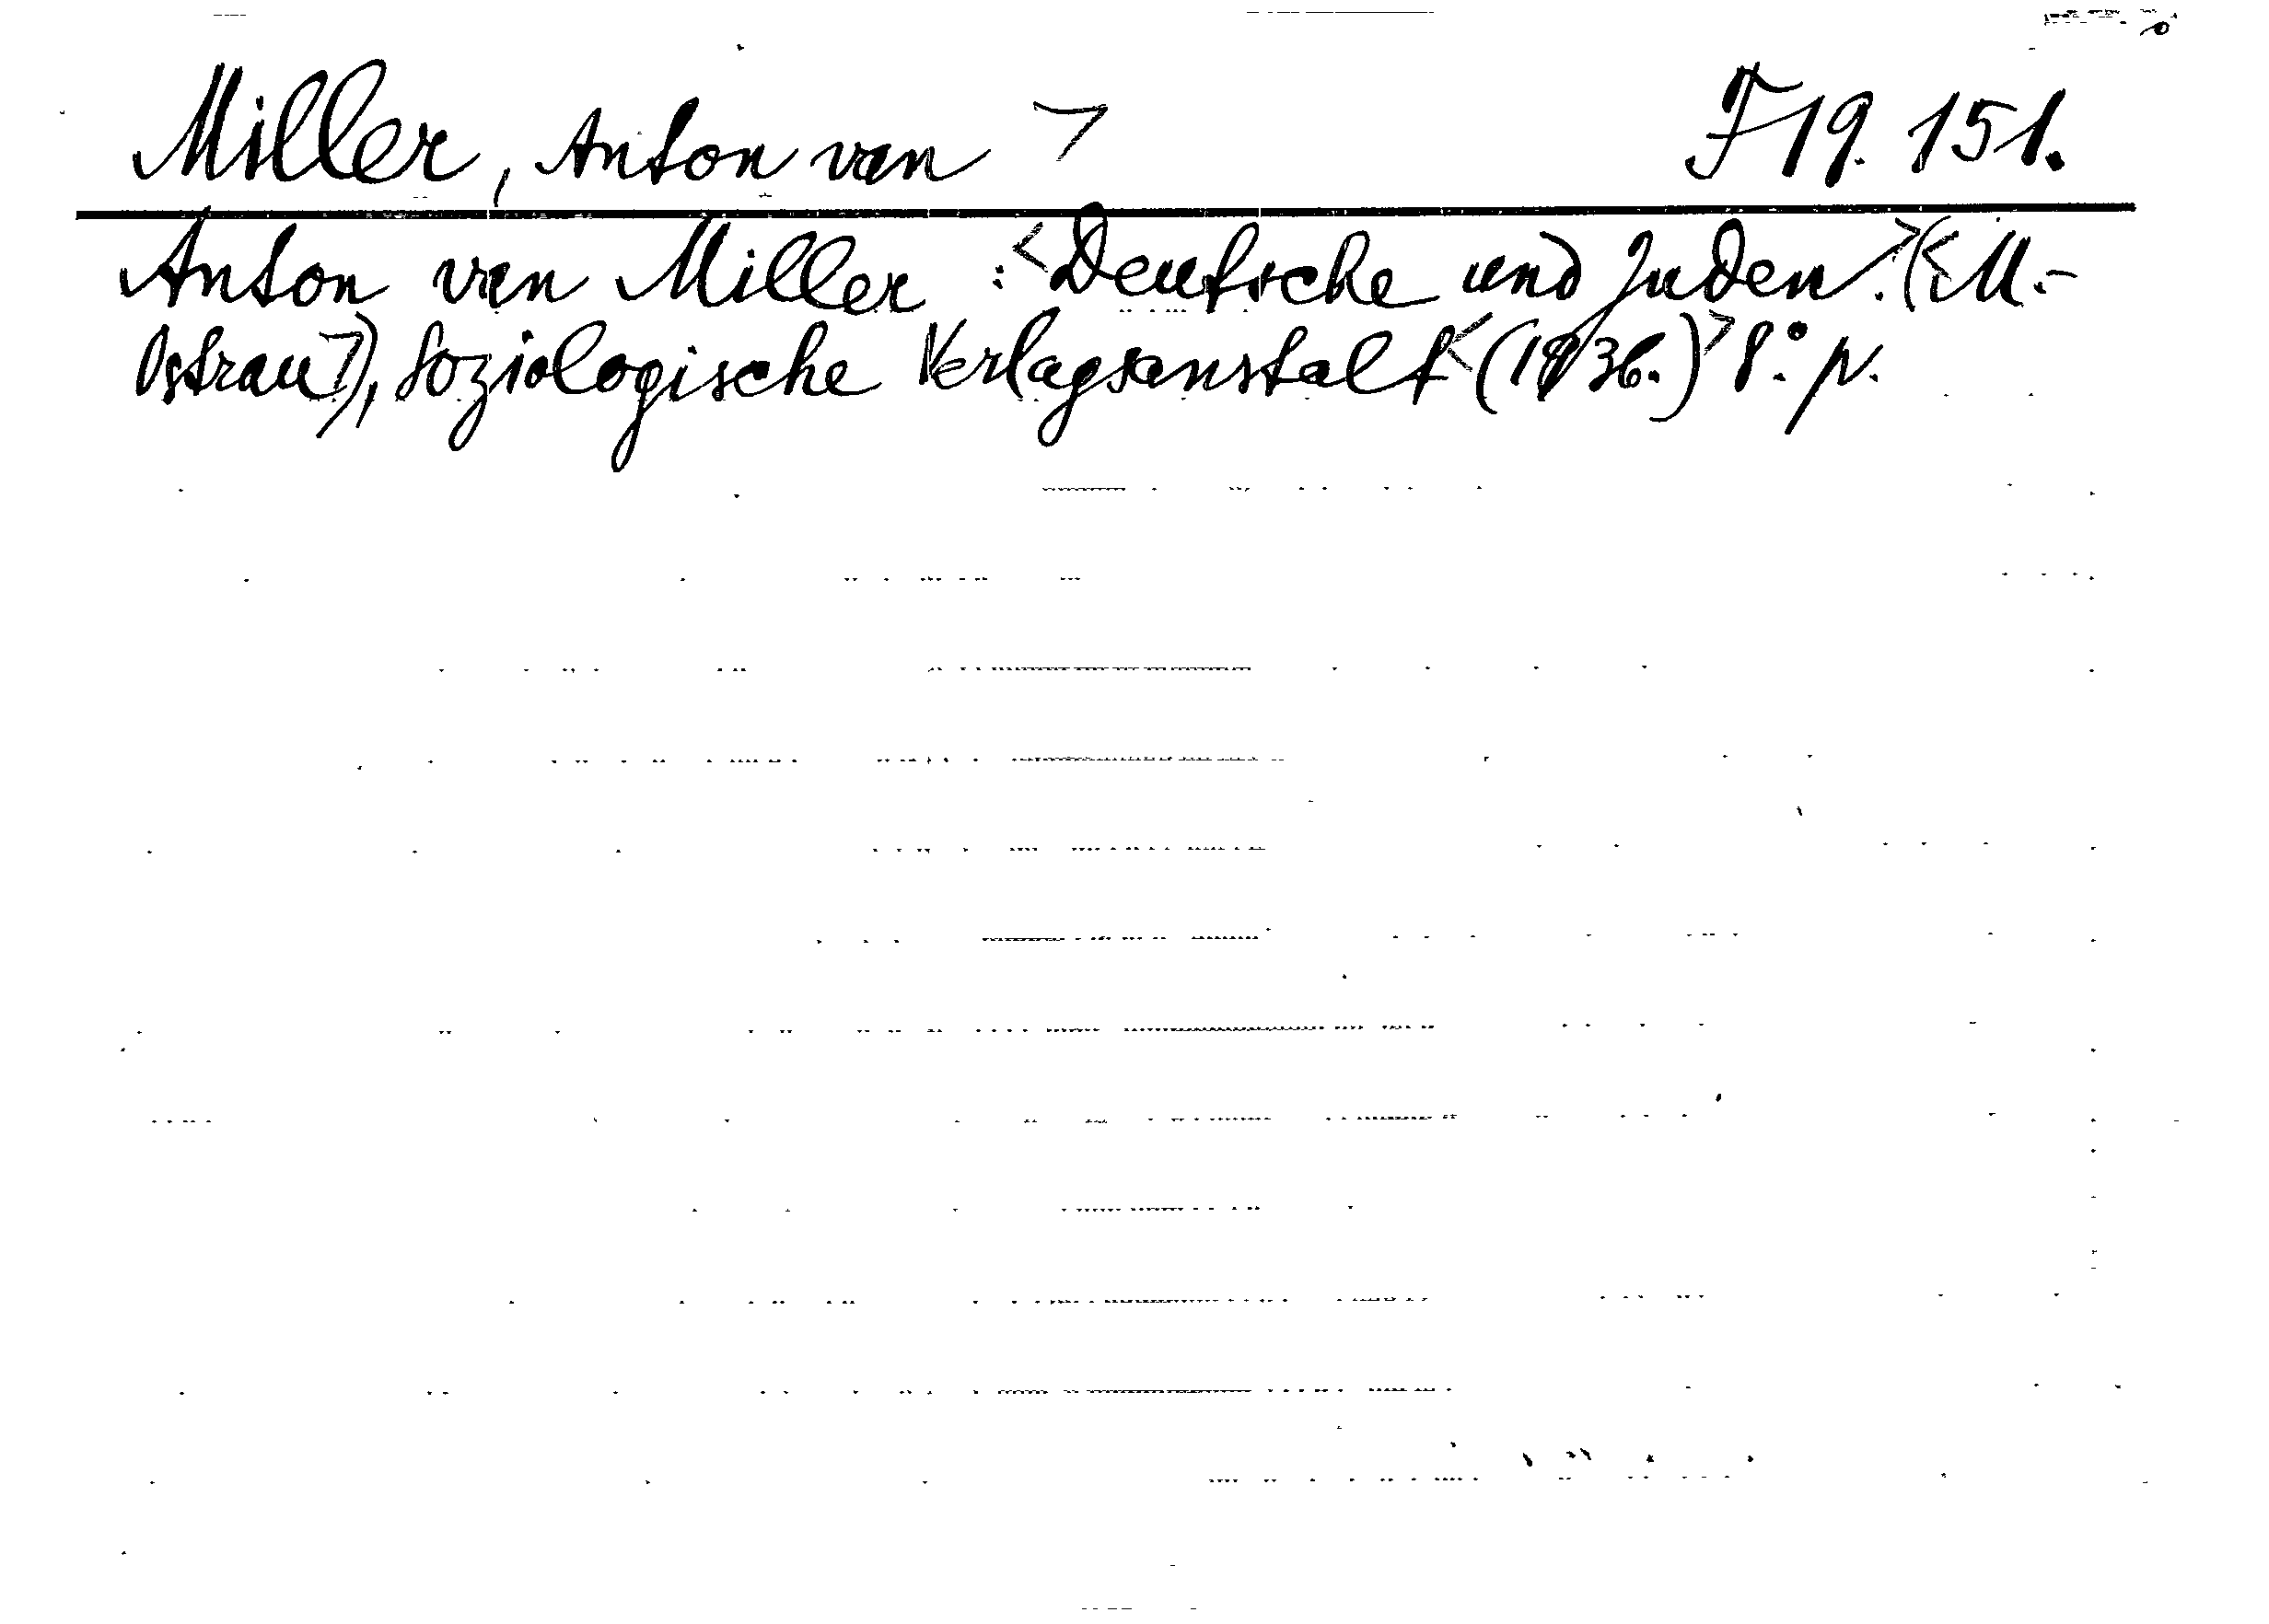 Miller, Anton van > F 19. 151.
Anton van Miller : <Deutsche und Juden.> (<M.-
Ostrau>), Soziologische Verlagsanstalt <(1936.)> 8° p.